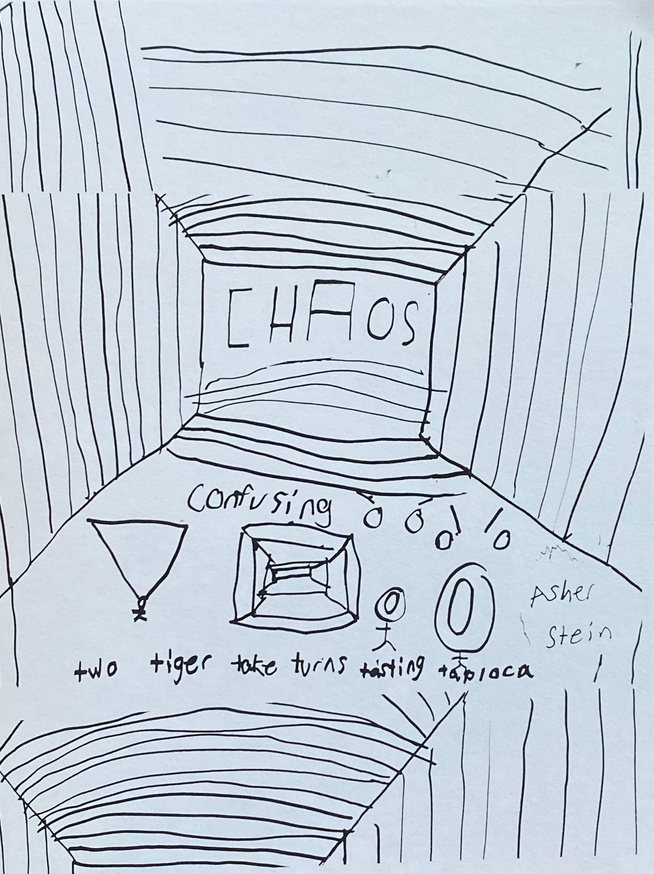 CHAOS
confusing
Asher
Stein
two tiger take turns tasting tapioca